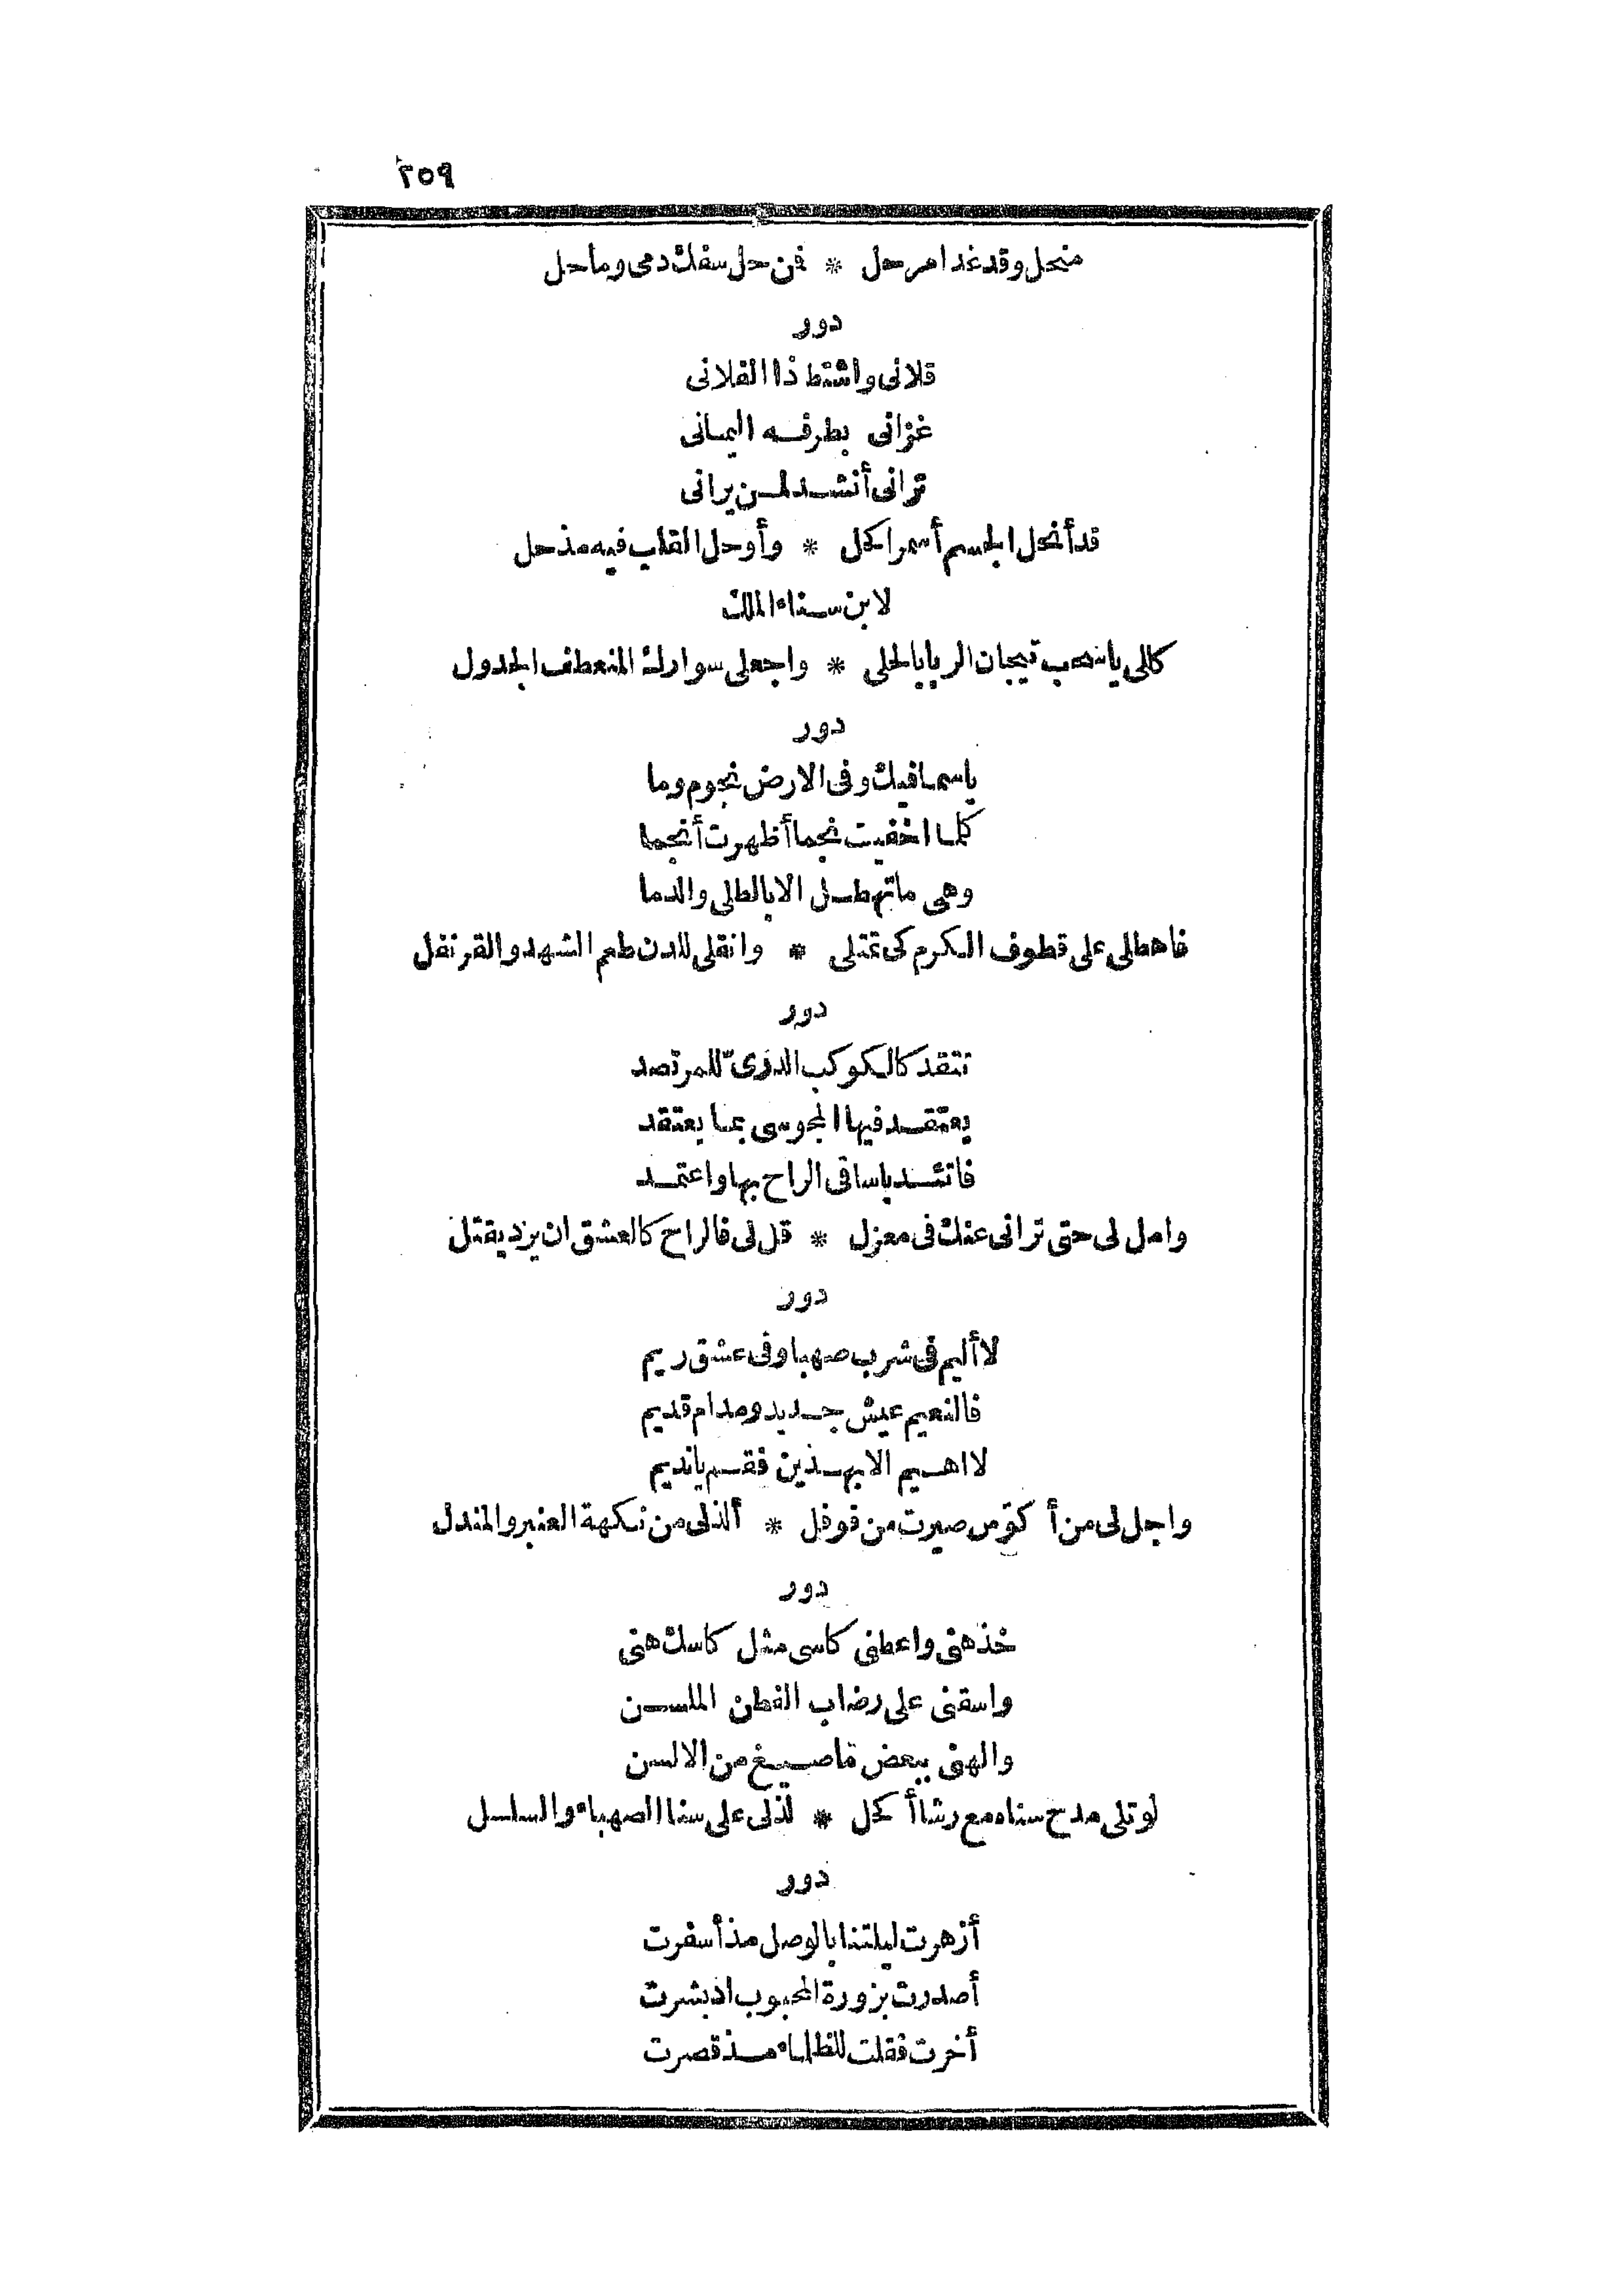 ٢٥٩
منحل وقد غدا مرحل * فن حل سفك دمى وما حل
دور
قلانى واشتط ذا الفلانى
غزانى بطرفه اليمانى
ترانى أنشد لمن يرانى
قد أنحل الجسم أسمرا كحل * وأوحل القلب فيه مذ حل
لابن سناء الملك
كللى يا سحب تيجان الربا بالحلى * واجعلى سوارك المنعطف الجدول
دور
ياسما فيك وفى الارض نجوم وما
كلما اخفيت نجما أظهرت أنجما
وهى ماتهطل الا بالطلى والدما
فاهطلى على قطوف الكرم كى تمتلى * وانقلى للدن طعم الشهد والقرنفل
دور
تتقد كالكوكب الدرىّ للمرتصد
يعتقد فيها المجوسى بما يعتقد
فاتئد ياساقى الراح بها واعتمد
وامل لى حتى ترانى عنك فى معزل * قل لى فالراح كالعشق ان يزد يقتل
دور
لا أليم فى شرب صهبا وفى عشق ريم
فالنعيم عيش جديد ومدام قديم
لا اهيم الا بهذين فقم يانديم
واجل لى من أكؤس صيرت من فوفل * ألذ لى من نكهة العنبر والمندل
دور
خذ هنى واعطنى كاسى مثل كاسك هنى
واسقنى على رضاب الفطن الملسن
والهنى ببعض ماصيغ من الالسن
لوتلى مدح سناه مع رشا أكحل * لذلى على سنا الصهباء والسلسل
دور
أزهرت ليلتنا بالوصل مذ أسفرت
أصدرت بزورة المحبوب اذ بشرت
أخرت فقلت للظلماء مذ قصرت